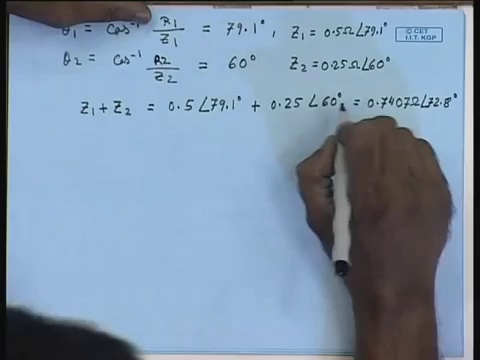 θ₁ = Cos⁻¹ R₁/Z₁ = 79.1°, Z₁ = 0.5Ω∠79.1°
© CET
I.I.T. KGP
θ₂ = Cos⁻¹ R₂/Z₂ = 60° Z₂ = 0.25Ω∠60°
Z₁ + Z₂ = 0.5∠79.1° + 0.25∠60° = 0.7407Ω∠72.8°